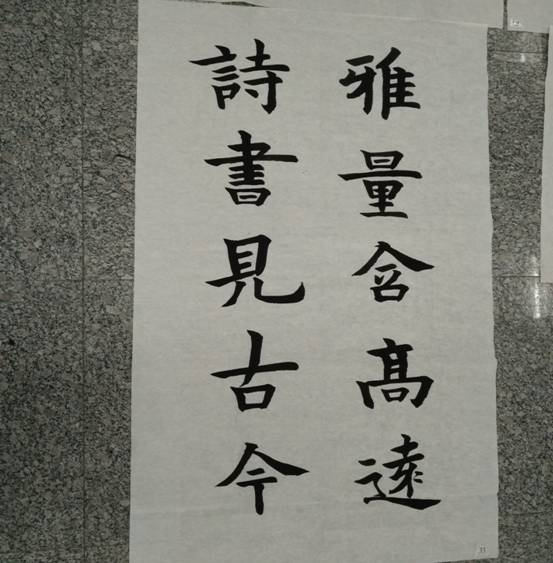 雅量含髙遠
詩書見古今
33